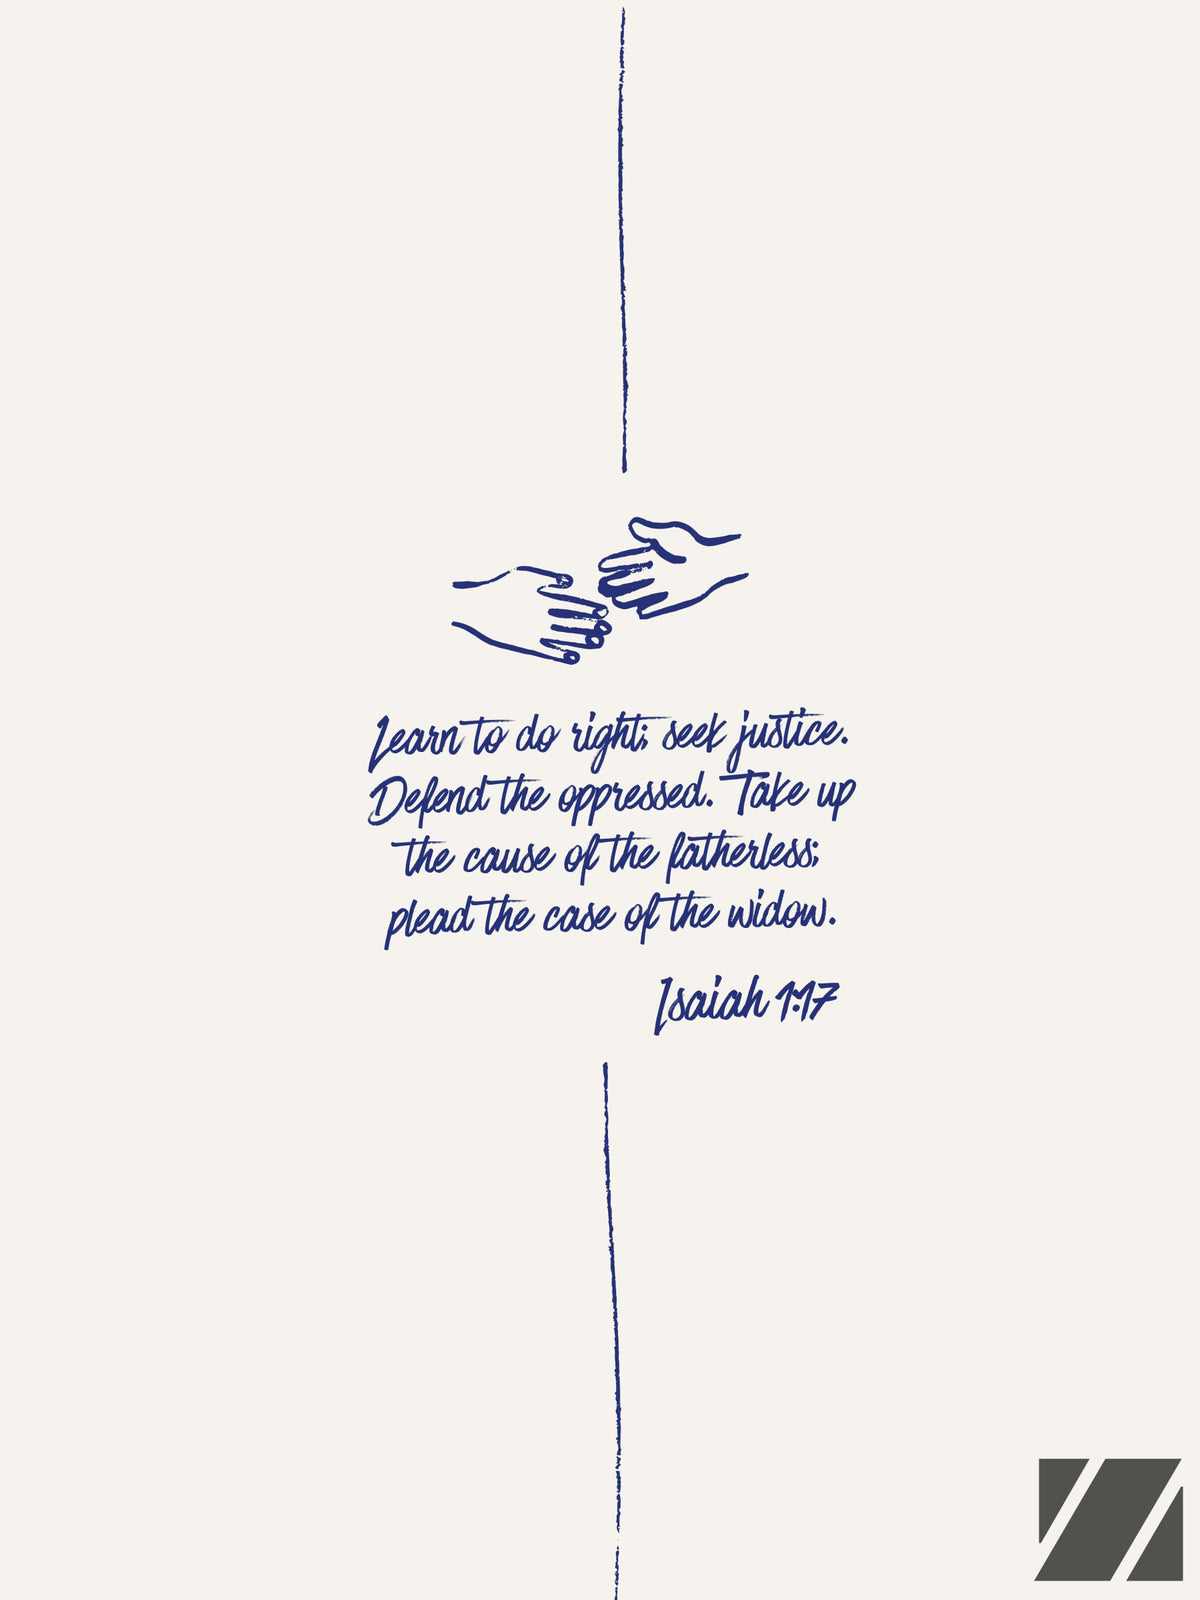 Learn to do right; seek justice.
Defend the oppressed. Take up
the cause of the fatherless;
plead the case of the widow.
Isaiah 1:17